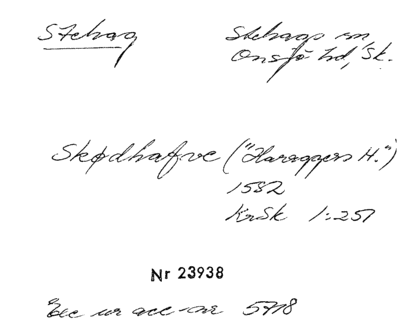 Stehag
Stehags sn
Onsjö hd, Sk.
Skødhafve ("Haraggers H.")
1582
KrSk 1:251
Nr 23938
Exc ur acc-nr 5718